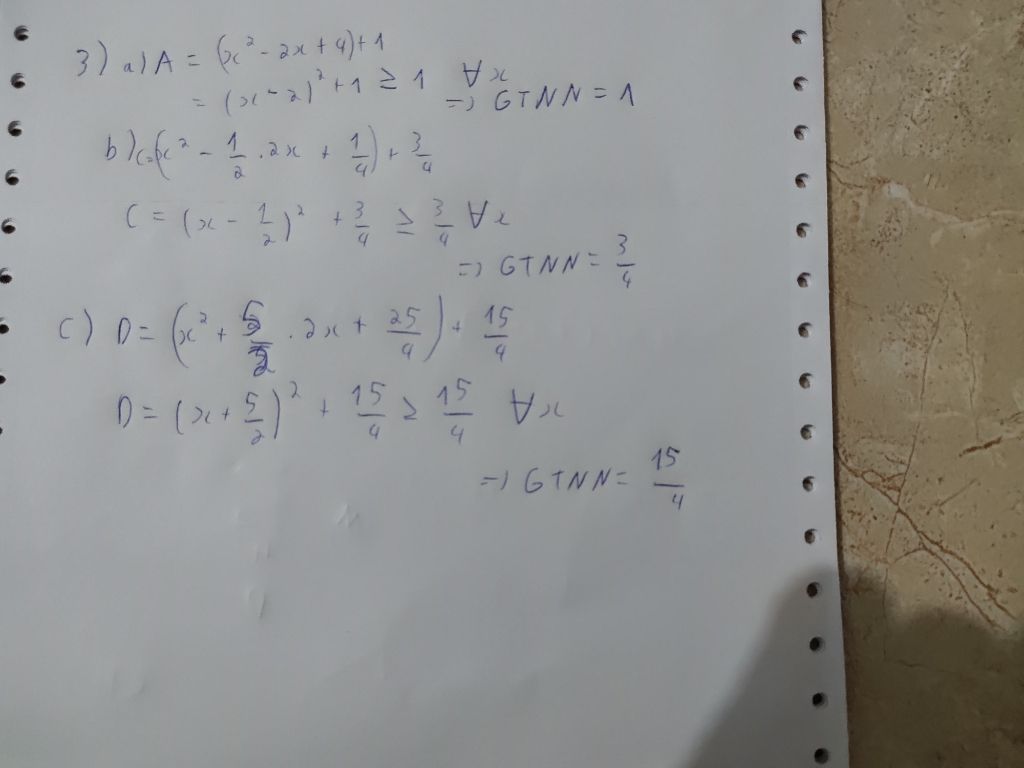 3) a) A = (x² - 2x + 4) + 1
= (x - 2)² + 1 ≥ 1 ∀x
=> GTNN = 1
b) C = (x² - 1/2 . 2x + 1/4) + 3/4
C = (x - 1/2)² + 3/4 ≥ 3/4 ∀x
=> GTNN = 3/4
c) D = (x² + 5/2 . 2x + 25/4) + 15/4
D = (x + 5/2)² + 15/4 ≥ 15/4 ∀x
=> GTNN = 15/4